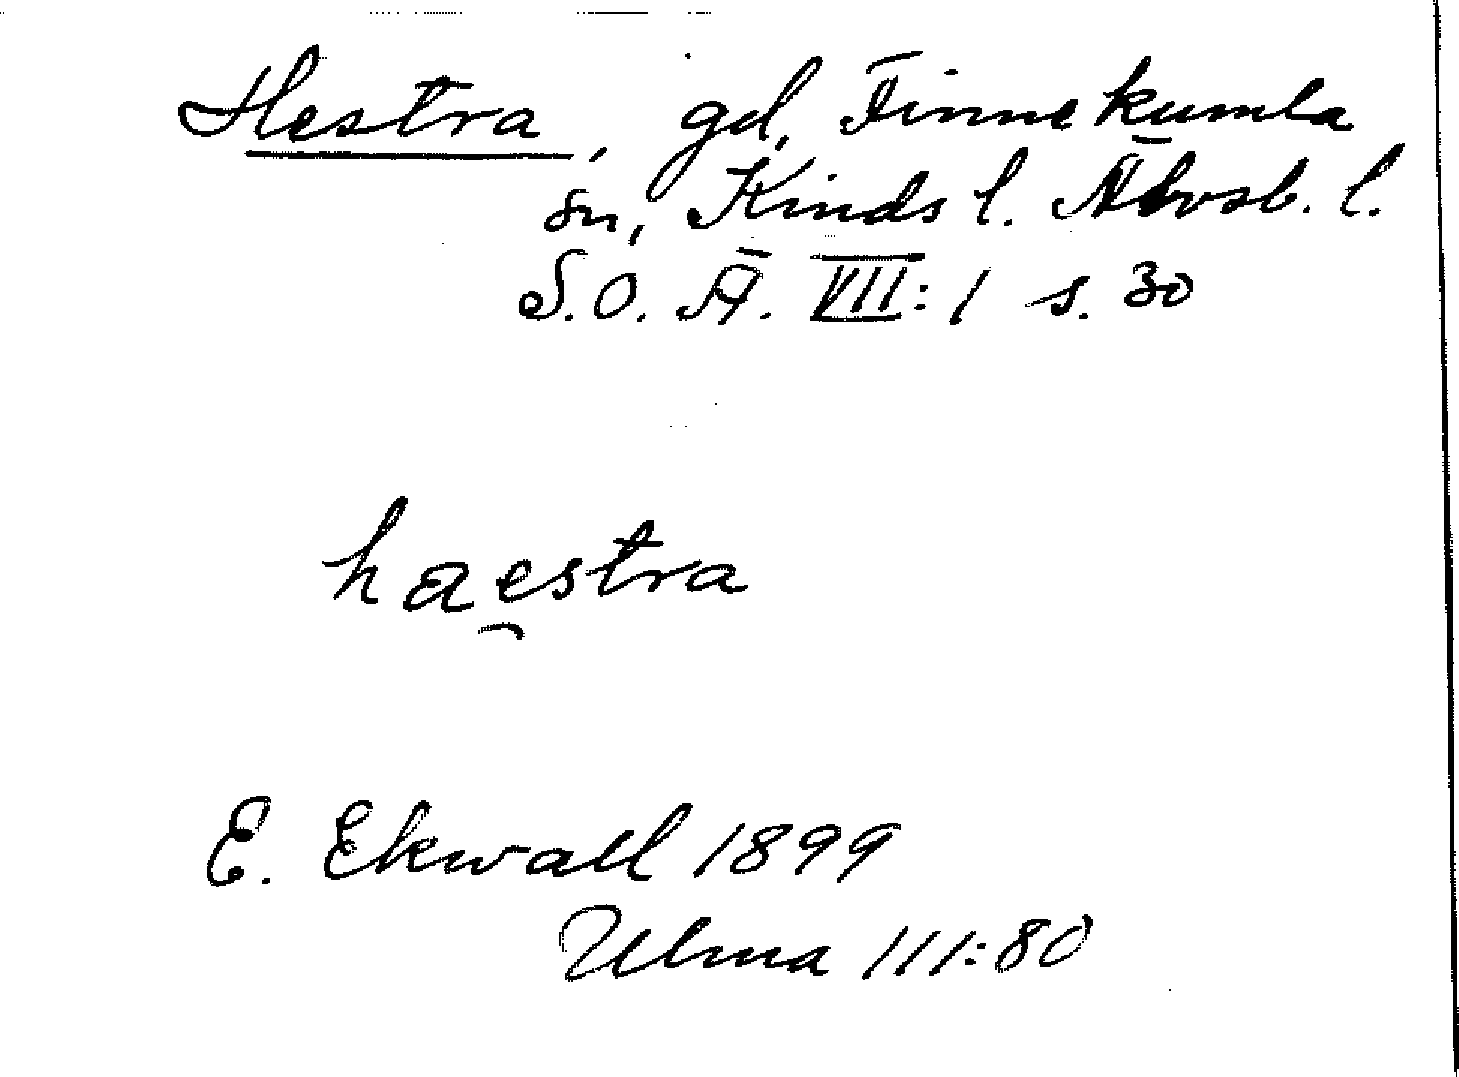 Hestra, gd, Finnekumla
sn, Kinds l. Älvsb. l.
S.O. Ä. VII:1 s. 30
haestra
E. Ekwall 1899
Ulma 111:80